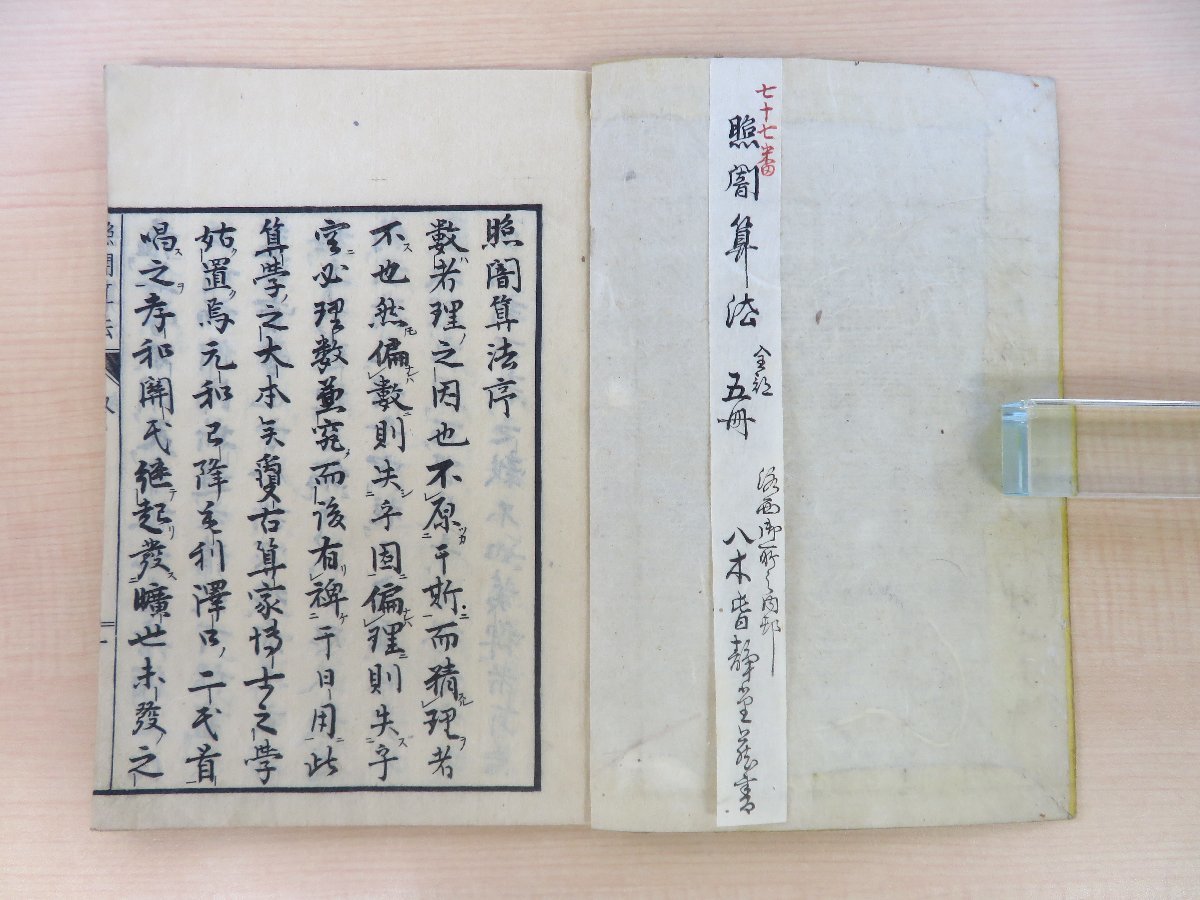 七十七番
照闇算法
全部
五冊
洛西御所之内邨
八木嗜静堂蔵書
照闇算法序
數者理之因也不原于斯而精理者
不也然偏數則失乎固偏理則失乎
空必理數兼究而後有裨于日用此
算學之大本矣夐古算家博士之學
姑置焉元和已降毛利澤口二氏首
唱之孝和關氏継起發曠世未發之